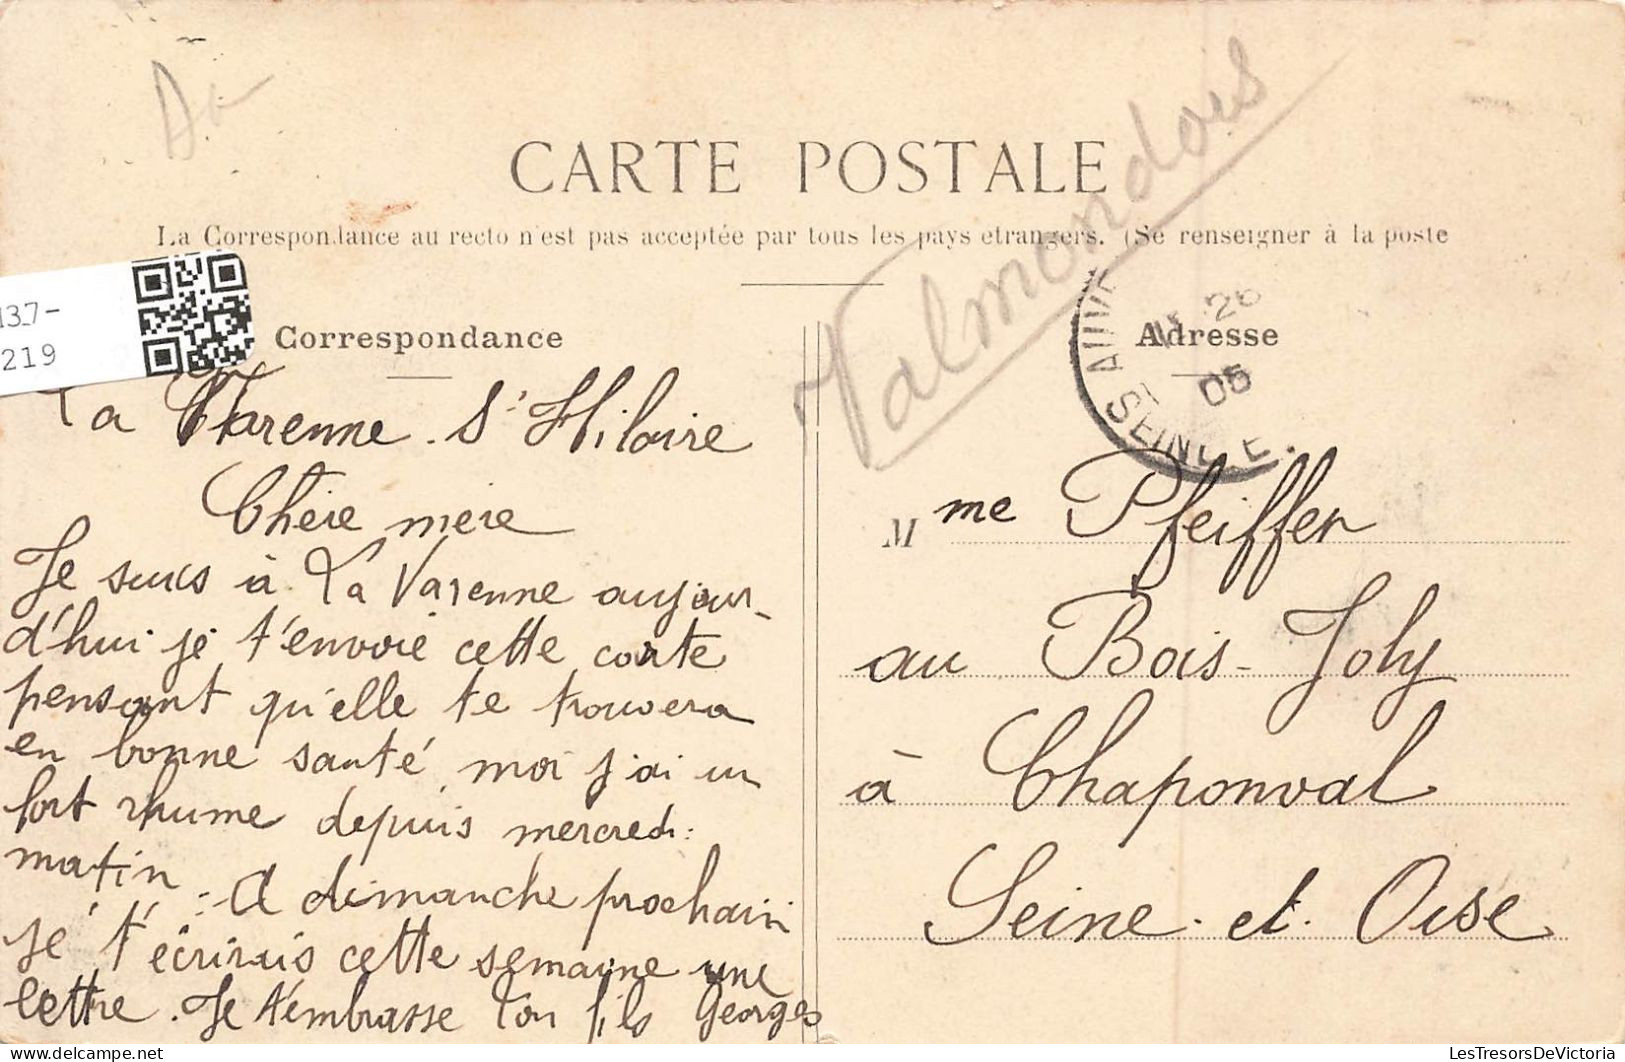 CARTE POSTALE
La Correspondance au recto n'est pas acceptée par tous les pays etrangers. (Se renseigner à la poste
Valmondois
137-
219
Correspondance
La Varenne. St Hilaire
Chère mère
Je suis à La Varenne aujour-
d'hui je t'envoie cette carte
pensant qu'elle te trouvera
en bonne santé moi j'ai un
fort rhume depuis mercredi
matin. A dimanche prochain
je t'écrirais cette semaine une
lettre. Je t'embrasse Ton fils Georges
Adresse
26
05
SEINE
Mme Pfeiffer
au Bois-Joly
à Chaponval
Seine et Oise
LesTresorsDeVictoria